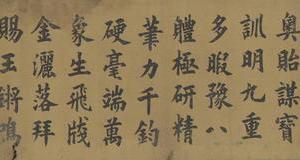 奧貽謀寶
訓明九重
多暇豫八
體極研精
筆力千鈞
硬毫端萬
象生飛牋
金灑落拜
賜玉鏘鳴